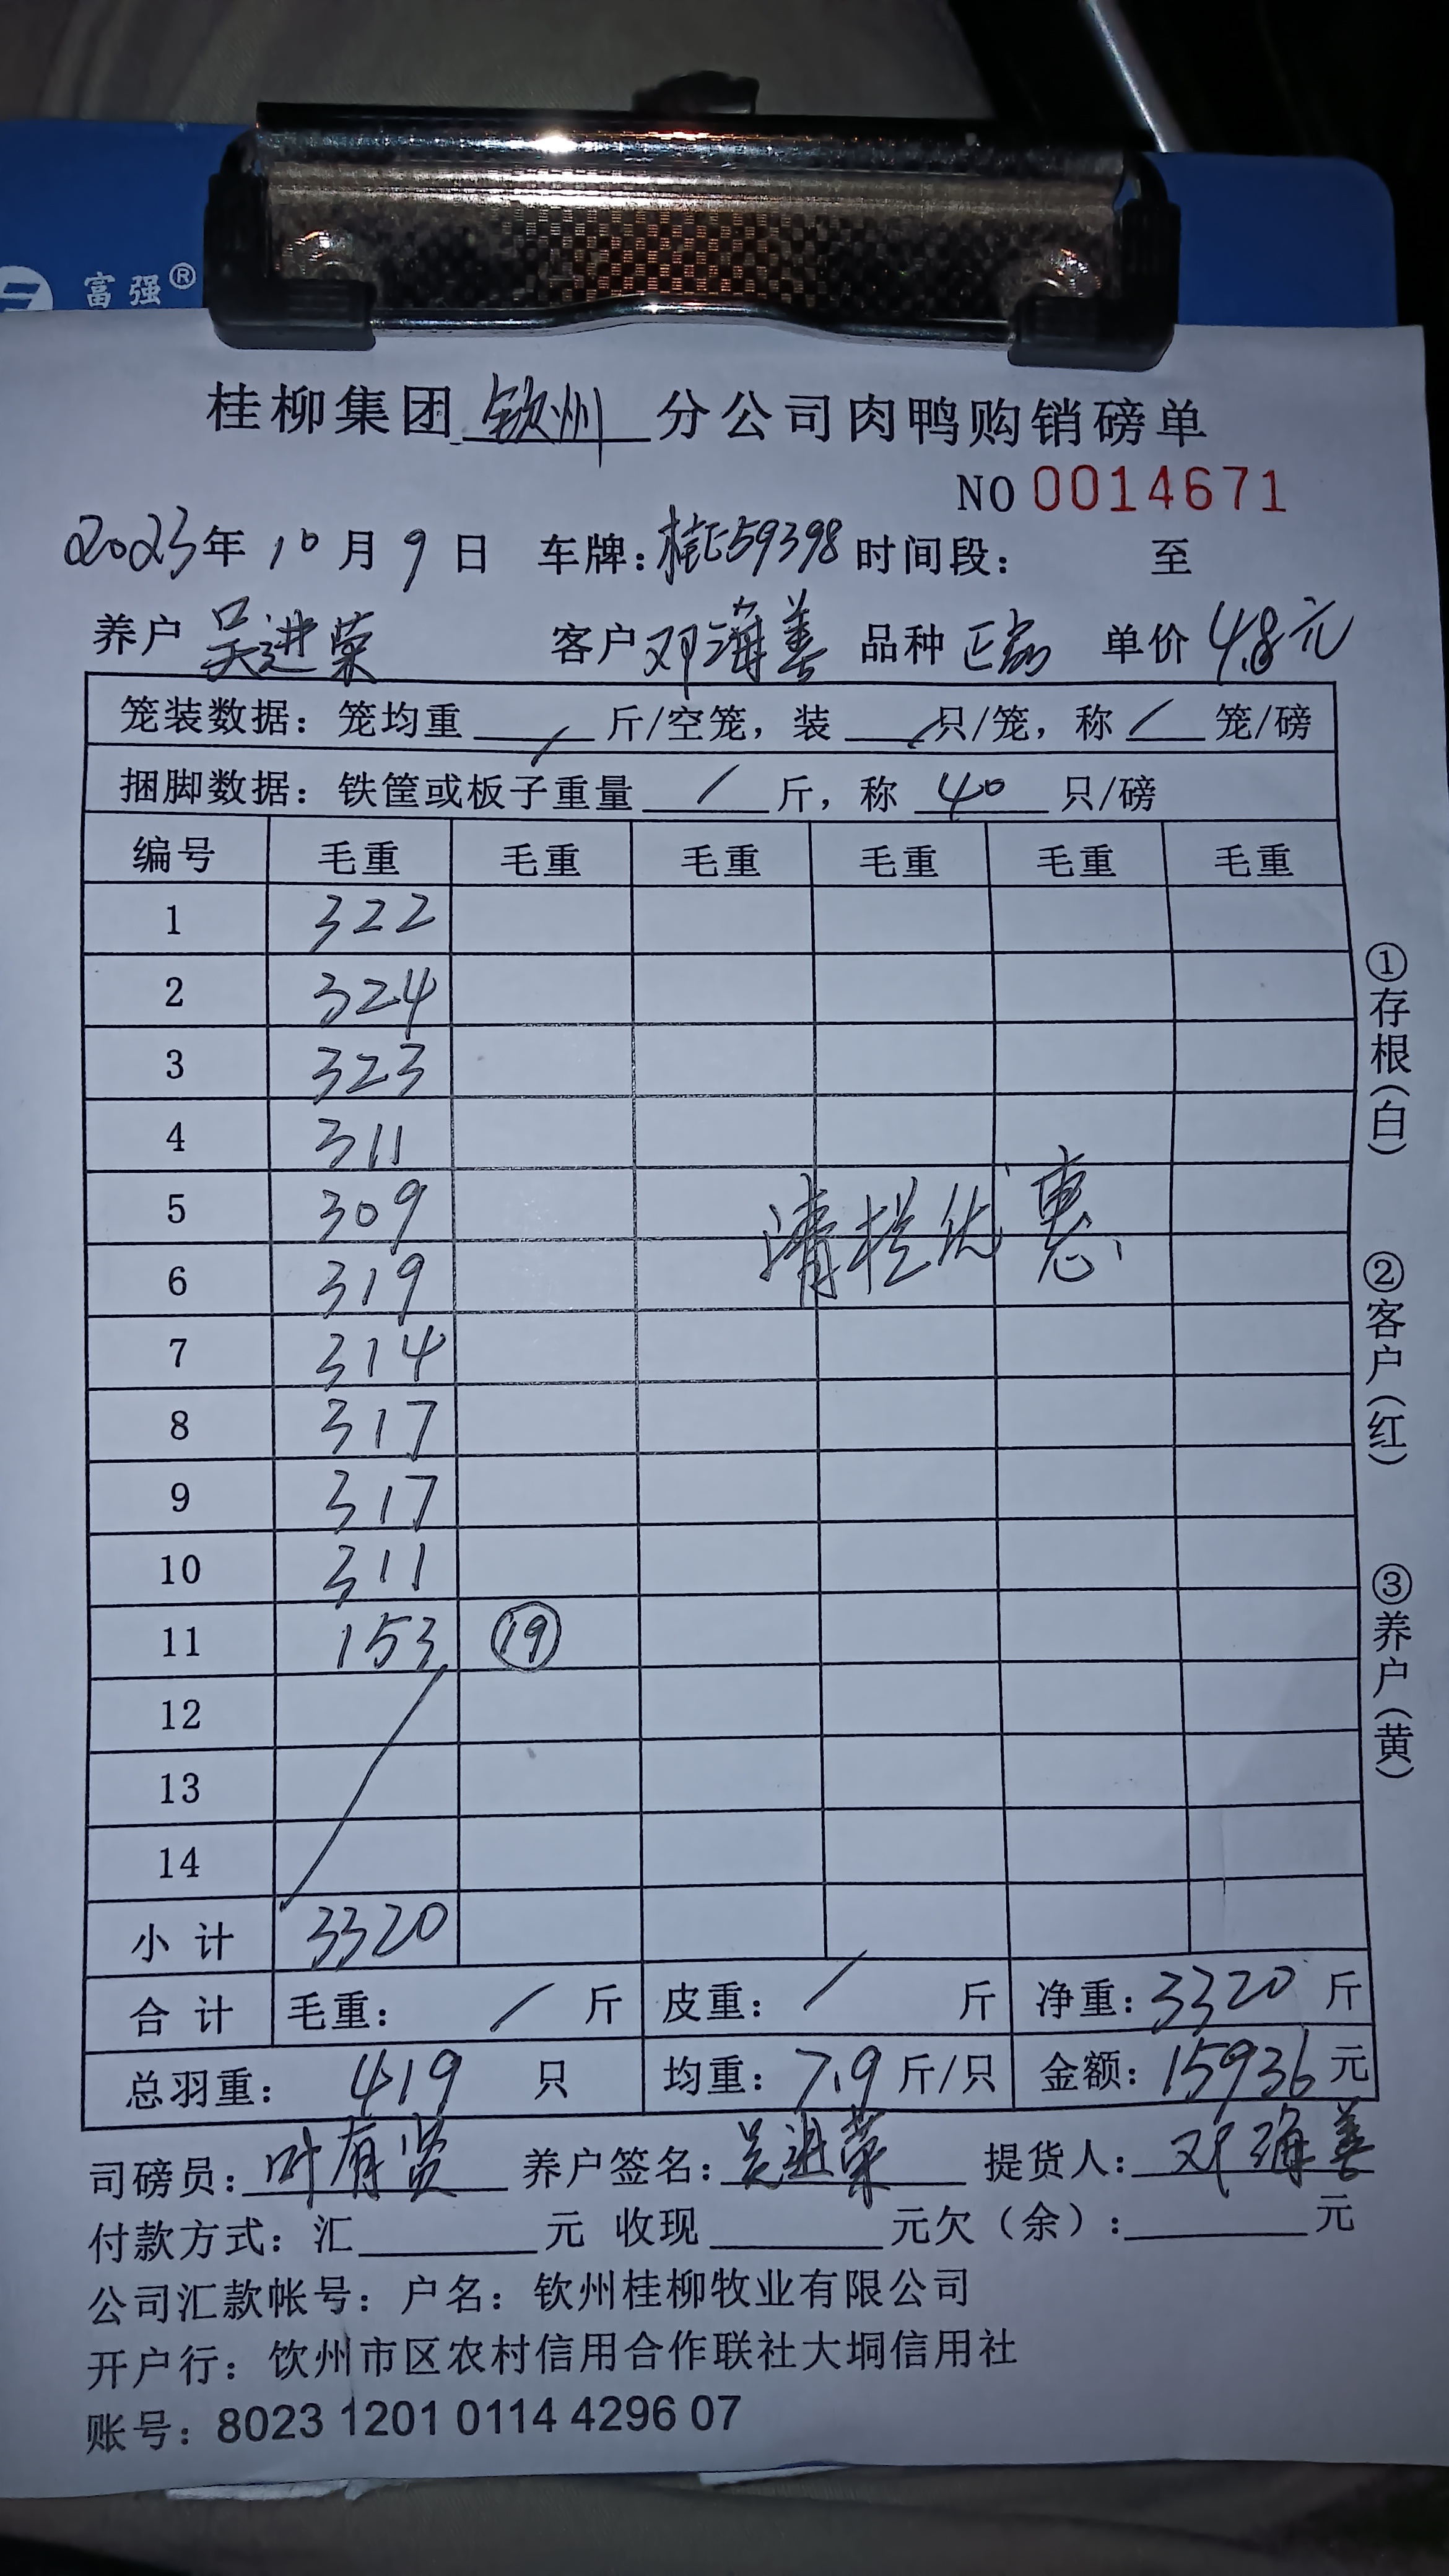 富强®
桂柳集团 钦州 分公司肉鸭购销磅单
NO 0014671
2023年 10 月 9 日 车牌：桂E59398 时间段： 至
养户 吴进荣 客户 邓海善 品种 正品 单价 4.8元
笼装数据：笼均重 / 斤/空笼，装 / 只/笼，称 / 笼/磅
捆脚数据：铁筐或板子重量 / 斤，称 40 只/磅
编号 毛重 毛重 毛重 毛重 毛重 毛重
1 322
2 324
3 323
4 311
5 309
6 319
7 314
8 317
9 317
10 311
11 153 ⑲
12
13
14
清栏优惠
小计 3320
合计 毛重： / 斤 皮重： / 斤 净重：3320 斤
总羽重： 419 只 均重：7.9 斤/只 金额：15936 元
司磅员：叶有贤 养户签名：吴进荣 提货人：邓海善
付款方式：汇 元 收现 元欠（余）： 元
公司汇款帐号：户名：钦州桂柳牧业有限公司
开户行：饮州市区农村信用合作联社大垌信用社
账号：8023 1201 0114 4296 07
①存根（白）
②客户（红）
③养户（黄）